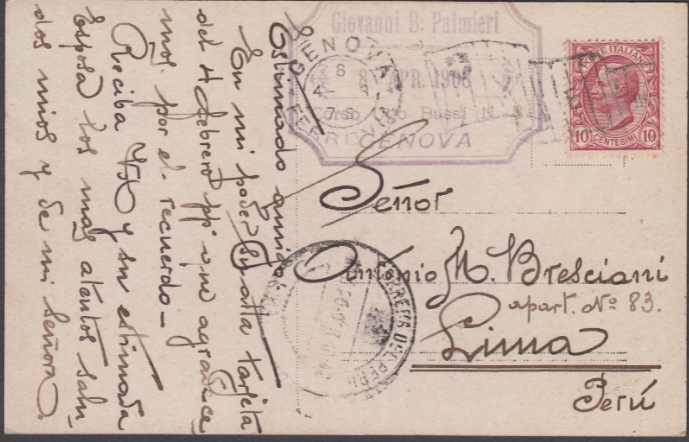 Estimado amigo:
En mi poder su atta tarjeta
del 4 febrero pp que agradece
mos por el recuerdo —
Reciba Vd y su estimada
esposa los mas atentos salu
dos mios y de mi señora
Giovanni B. Palmieri
8 APR. 1908
Corso Ugo Bassi N.
GENOVA
GENOVA
FERROVIA
POSTE ITALIANE
10 CENTESIMI 10
Señor
Antonio M. Bresciani
apart. Nº 83.
Lima
Perú
CORREOS DEL PERU